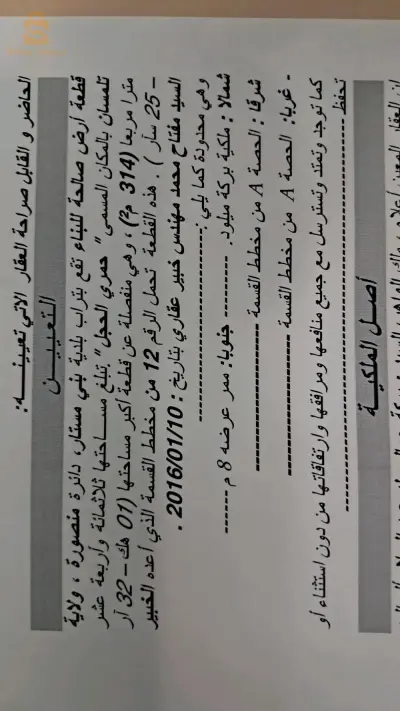 الحاضر و القابل صراحة العقار الاتي تعيينــه:
التعييــن
قطعة أرض صالحة للبناء تقع بتراب بلدية بني مستار، دائرة منصورة ، ولاية
تلمسان بالمكان المسمى" حمري الحجل" تبلغ مساحتها ثلاثمائة وأربعة عشر
مترا مربعا (314 م2) ، وهي منفصلة عن قطعة أكبر مساحتها (01 هك – 32 آر
– 25 سآر ) . هذه القطعة تحمل الرقم 12 من مخطط القسمة الذي أعده الخبير
السيد مفتاح محمد مهندس خبير عقاري بتاريخ : 2016/01/10 .
وهي محدودة كما يلي :
شمالا : ملكية بركة ميلود. -------- جنوبا: ممر عرضه 8 م ------
شرقا : الحصة A من مخطط القسمة
- غربا: الحصة A من مخطط القسمة
كما توجد وتمتد وتسترسل مع جميع منافعها ومرافقها وارتفاقاتها من دون استثناء أو
تحفظ
أصل الملكيــة